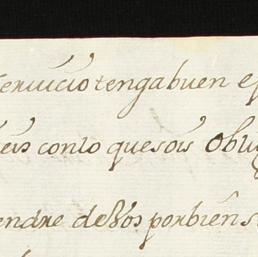 seruicio tenga buen e
eis con lo que sois Oblig
endre de Vos por bien s